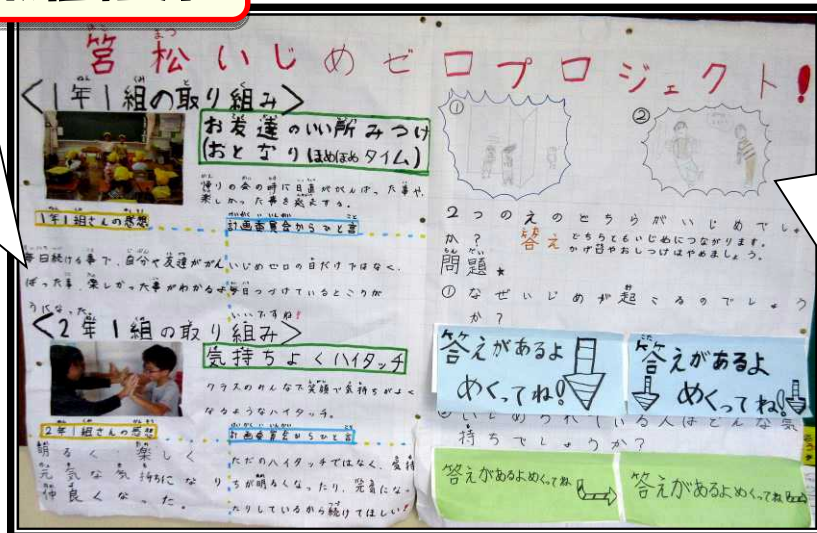 筥松いじめゼロプロジェクト!
<1年1組の取り組み>
お友達のいい所みつけ
(おとなりほめほめタイム)
帰りの会の時に日直ががんばった事や、
楽しかった事を発表する。
1年1組さんの感想
毎日続ける事で、自分や友達ががん
ばった事、楽しかった事がわかるよ
うになった。
計画委員会からひと言
いじめゼロの日だけではなく、
毎日つづけているところが
いいですね!
<2年1組の取り組み>
気持ちよくハイタッチ
クラスのみんなで笑顔で気持ちがよく
なるようなハイタッチ。
2年1組さんの感想
明るく、楽しく
元気な気持ちになり
仲良くなった。
計画委員会からひと言
ただのハイタッチではなく、気持
ちが明るくなったり、笑顔にな
ったりしているから続けてほしい!
①
②
2つのえのどちらがいじめでしょ
か?
答え どちらともいじめにつながります。
かげ口やおしつけはやめましょう。
問題★
①なぜいじめが起こるのでしょう
か?
答えがあるよ
めくってね!
答えがあるよ
めくってね!
②いじめられている人はどんな気
持ちでしょうか?
答えがあるよめくってね
答えがあるよめくってね